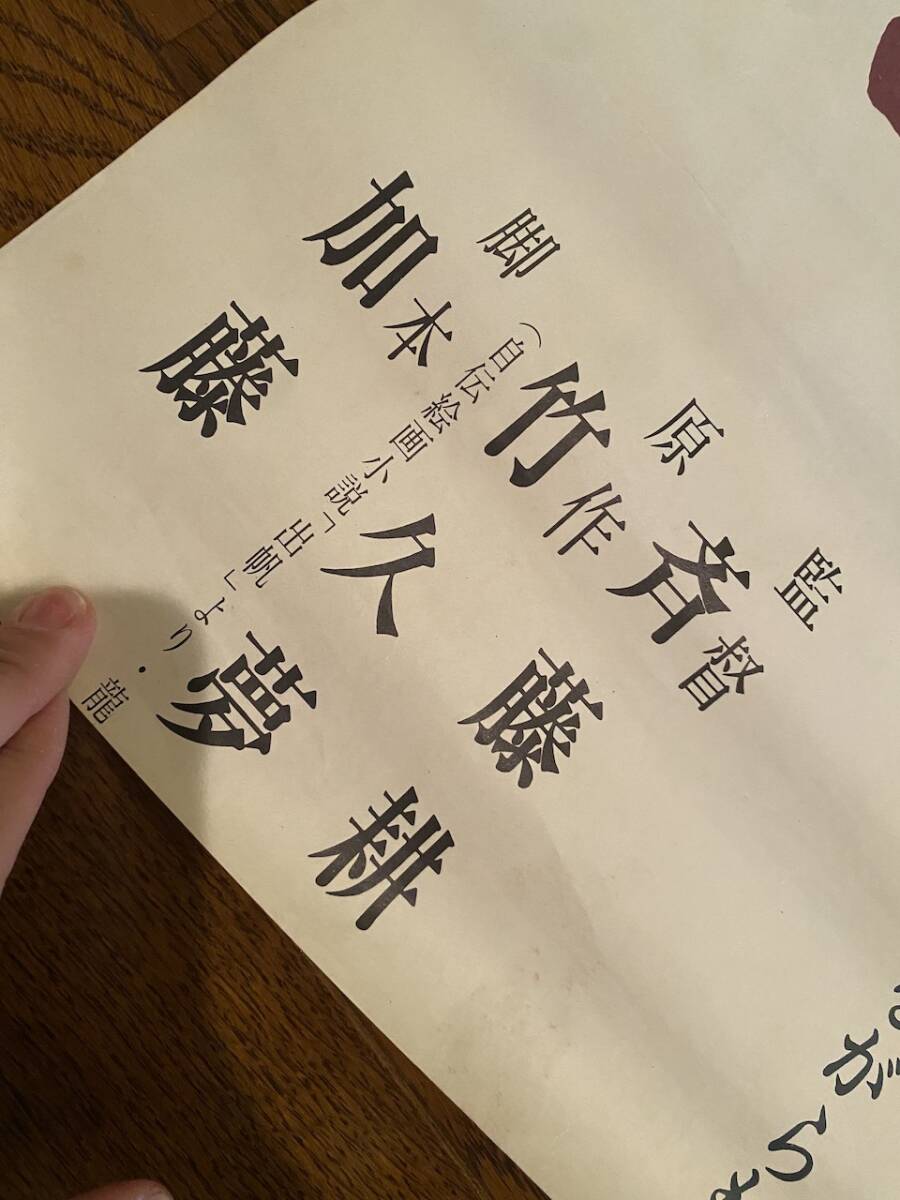 監督
斉藤耕
原作
竹久夢
（自伝絵画小説「出帆」より・龍
脚本
加藤
が